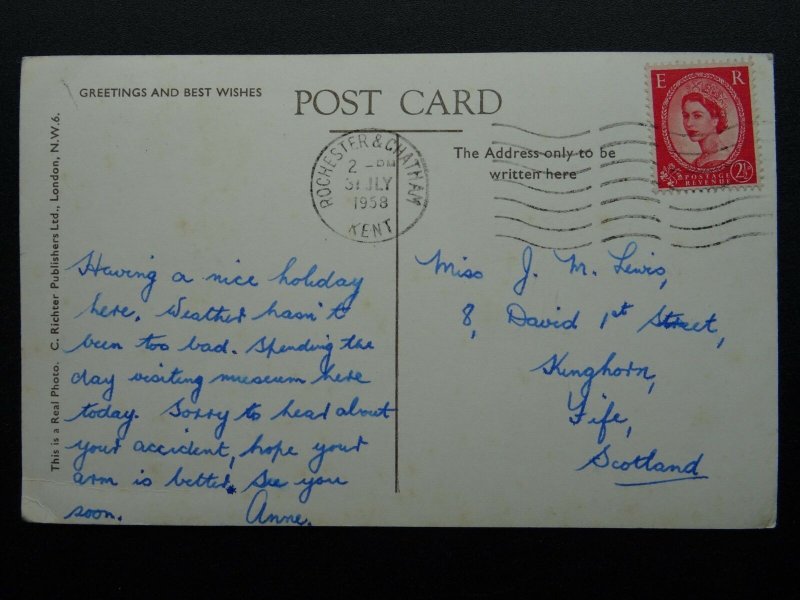 GREETINGS AND BEST WISHES
POST CARD
The Address only to be
written here
This is a Real Photo. C. Richter Publishers Ltd., London, N.W.6.
E R
POSTAGE
REVENUE
2½
ROCHESTER & CHATHAM
2 - PM
31 JLY
1958
KENT
Having a nice holiday
here. Weather hasn't
been too bad. Spending the
day visiting museum here
today. Sorry to hear about
your accident, hope your
arm is better. See you
soon. Anne.
Miss J. M. Lewis,
8, David 1st Street,
Kinghorn,
Fife,
Scotland